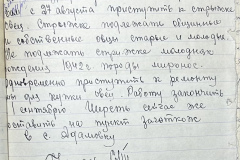 с 27 августа приступить к стрижке
овец. Стрижке подлежать овцишны
и собственные овцы старые и молодые
Не подлежать стрижке молодняк
рождения 1942 г породы
одновременно приступить к ремонту
для купки овец. Работу закончить
1 сентября Шерсть сейчас же
доставить на пункт заготкож
в с. Адамовку